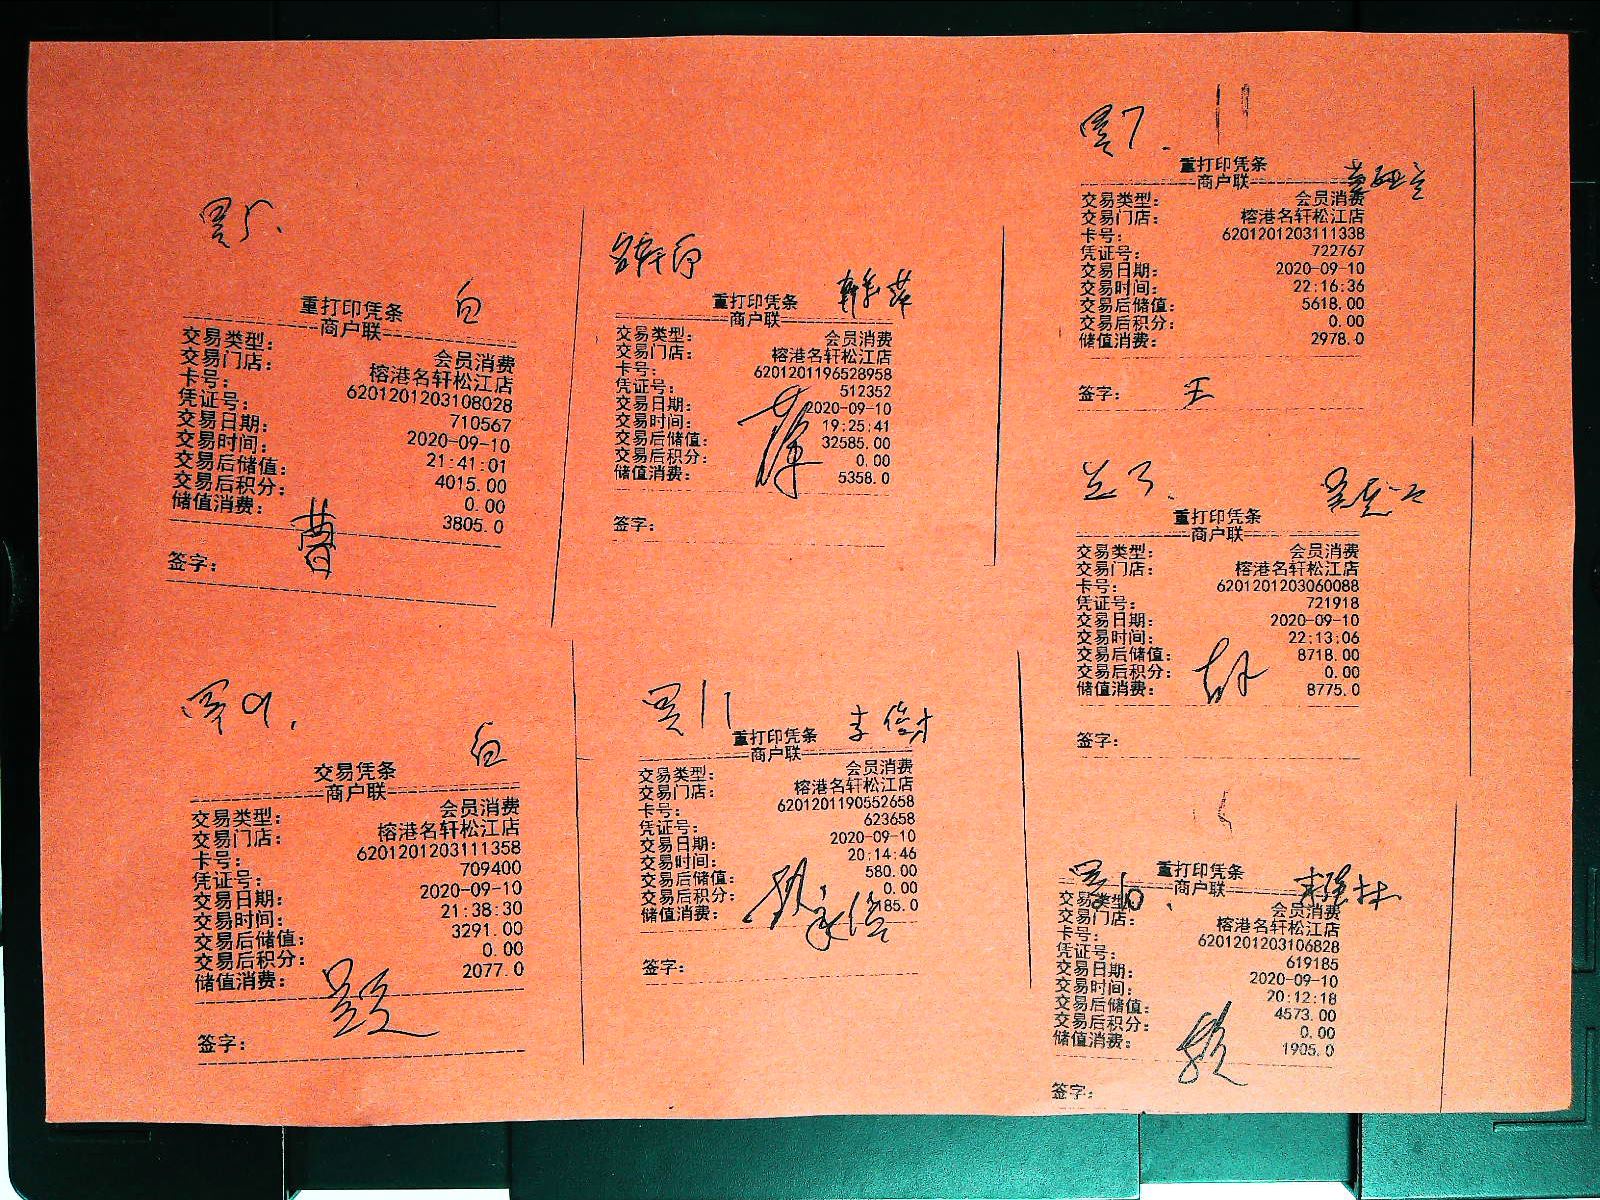 重打印凭条
商户联
交易类型： 会员消费
交易门店： 榕港名轩松江店
卡号： 6201201203108028
凭证号： 710567
交易日期： 2020-09-10
交易时间： 21:41:01
交易后储值： 4015.00
交易后积分： 0.00
储值消费： 3805.0
曹
签字：
重打印凭条
商户联
交易类型： 会员消费
交易门店： 榕港名轩松江店
卡号： 6201201196528958
凭证号： 512352
交易日期： 2020-09-10
交易时间： 19:25:41
交易后储值： 32585.00
交易后积分： 0.00
储值消费： 5358.0
签字：
重打印凭条
商户联
交易类型： 会员消费
交易门店： 榕港名轩松江店
卡号： 6201201203111338
凭证号： 722767
交易日期： 2020-09-10
交易时间： 22:16:36
交易后储值： 5618.00
交易后积分： 0.00
储值消费： 2978.0
签字： 王
兰3.
重打印凭条
商户联
交易类型： 会员消费
交易门店： 榕港名轩松江店
卡号： 6201201203060088
凭证号： 721918
交易日期： 2020-09-10
交易时间： 22:13:06
交易后储值： 8718.00
交易后积分： 0.00
储值消费： 8775.0
签字：
交易凭条
商户联
交易类型： 会员消费
交易门店： 榕港名轩松江店
卡号： 6201201203111358
凭证号： 709400
交易日期： 2020-09-10
交易时间： 21:38:30
交易后储值： 3291.00
交易后积分： 0.00
储值消费： 2077.0
签字：
重打印凭条
商户联
交易类型： 会员消费
交易门店： 榕港名轩松江店
卡号： 6201201190552658
凭证号： 623658
交易日期： 2020-09-10
交易时间： 20:14:46
交易后储值： 580.00
交易后积分： 0.00
储值消费： 185.0
签字：
重打印凭条
商户联
交易类型： 会员消费
交易门店： 榕港名轩松江店
卡号： 6201201203106828
凭证号： 619185
交易日期： 2020-09-10
交易时间： 20:12:18
交易后储值： 4573.00
交易后积分： 0.00
储值消费： 1905.0
签字：